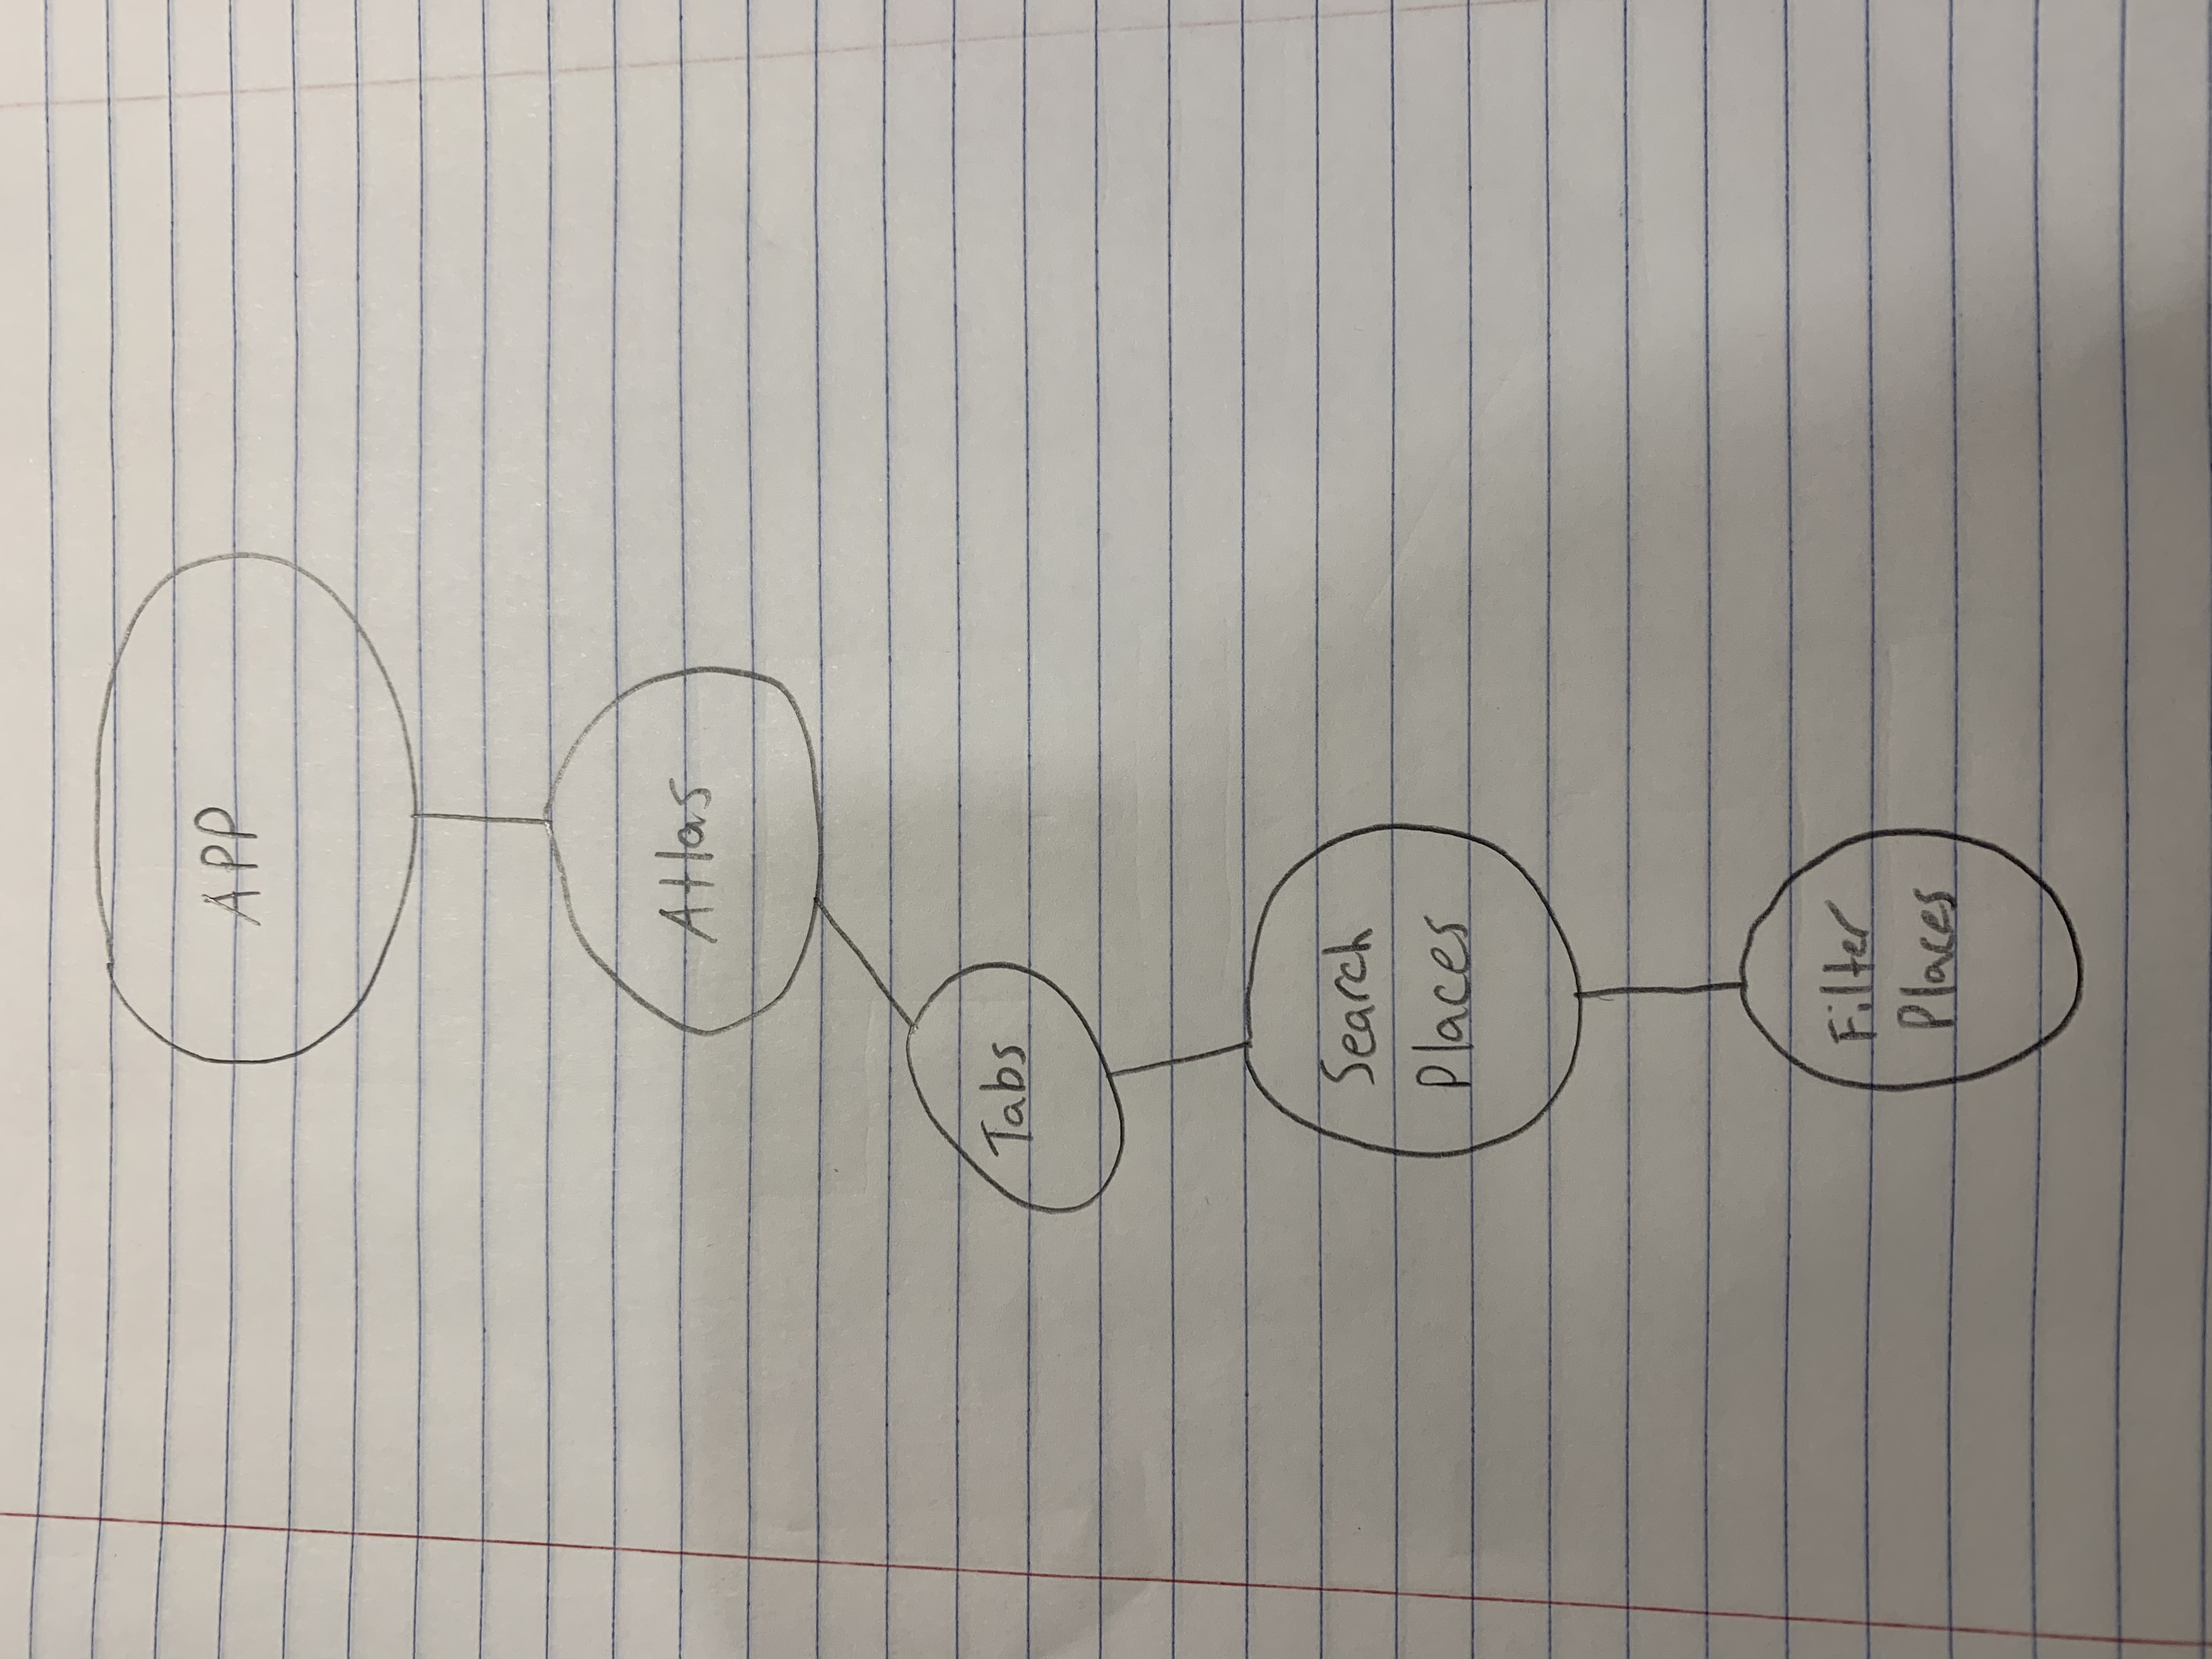 APP
Atlas
Tabs
Search
Places
Filter
Places